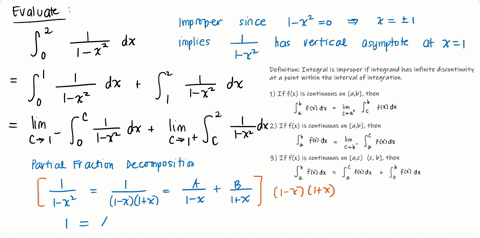 Evaluate:
∫₀² 1/(1-x²) dx
Improper since 1-x²=0 ⇒ x = ±1
implies 1/(1-x²) has vertical asymptote at x=1
= ∫₀¹ 1/(1-x²) dx + ∫₁² 1/(1-x²) dx
= lim c→1⁻ ∫₀ᶜ 1/(1-x²) dx + lim c→1⁺ ∫_c² 1/(1-x²) dx
Definition: Integral is improper if integrand has infinite discontinuity
at a point within the interval of integration.
1) If f(x) is continuous on (a,b], then
∫ₐᵇ f(x) dx = lim c→a⁺ ∫_cᵇ f(x) dx
2) If f(x) is continuous on [a,b), then
∫ₐᵇ f(x) dx = lim c→b⁻ ∫ₐᶜ f(x) dx
3) If f(x) is continuous on [a,c) (c, b], then
∫ₐᵇ f(x) dx = ∫ₐᶜ f(x) dx + ∫_cᵇ f(x) dx
Partial Fraction Decomposition
[ 1/(1-x²) = 1/((1-x)(1+x)) = A/(1-x) + B/(1+x) ] (1-x)(1+x)
1 =